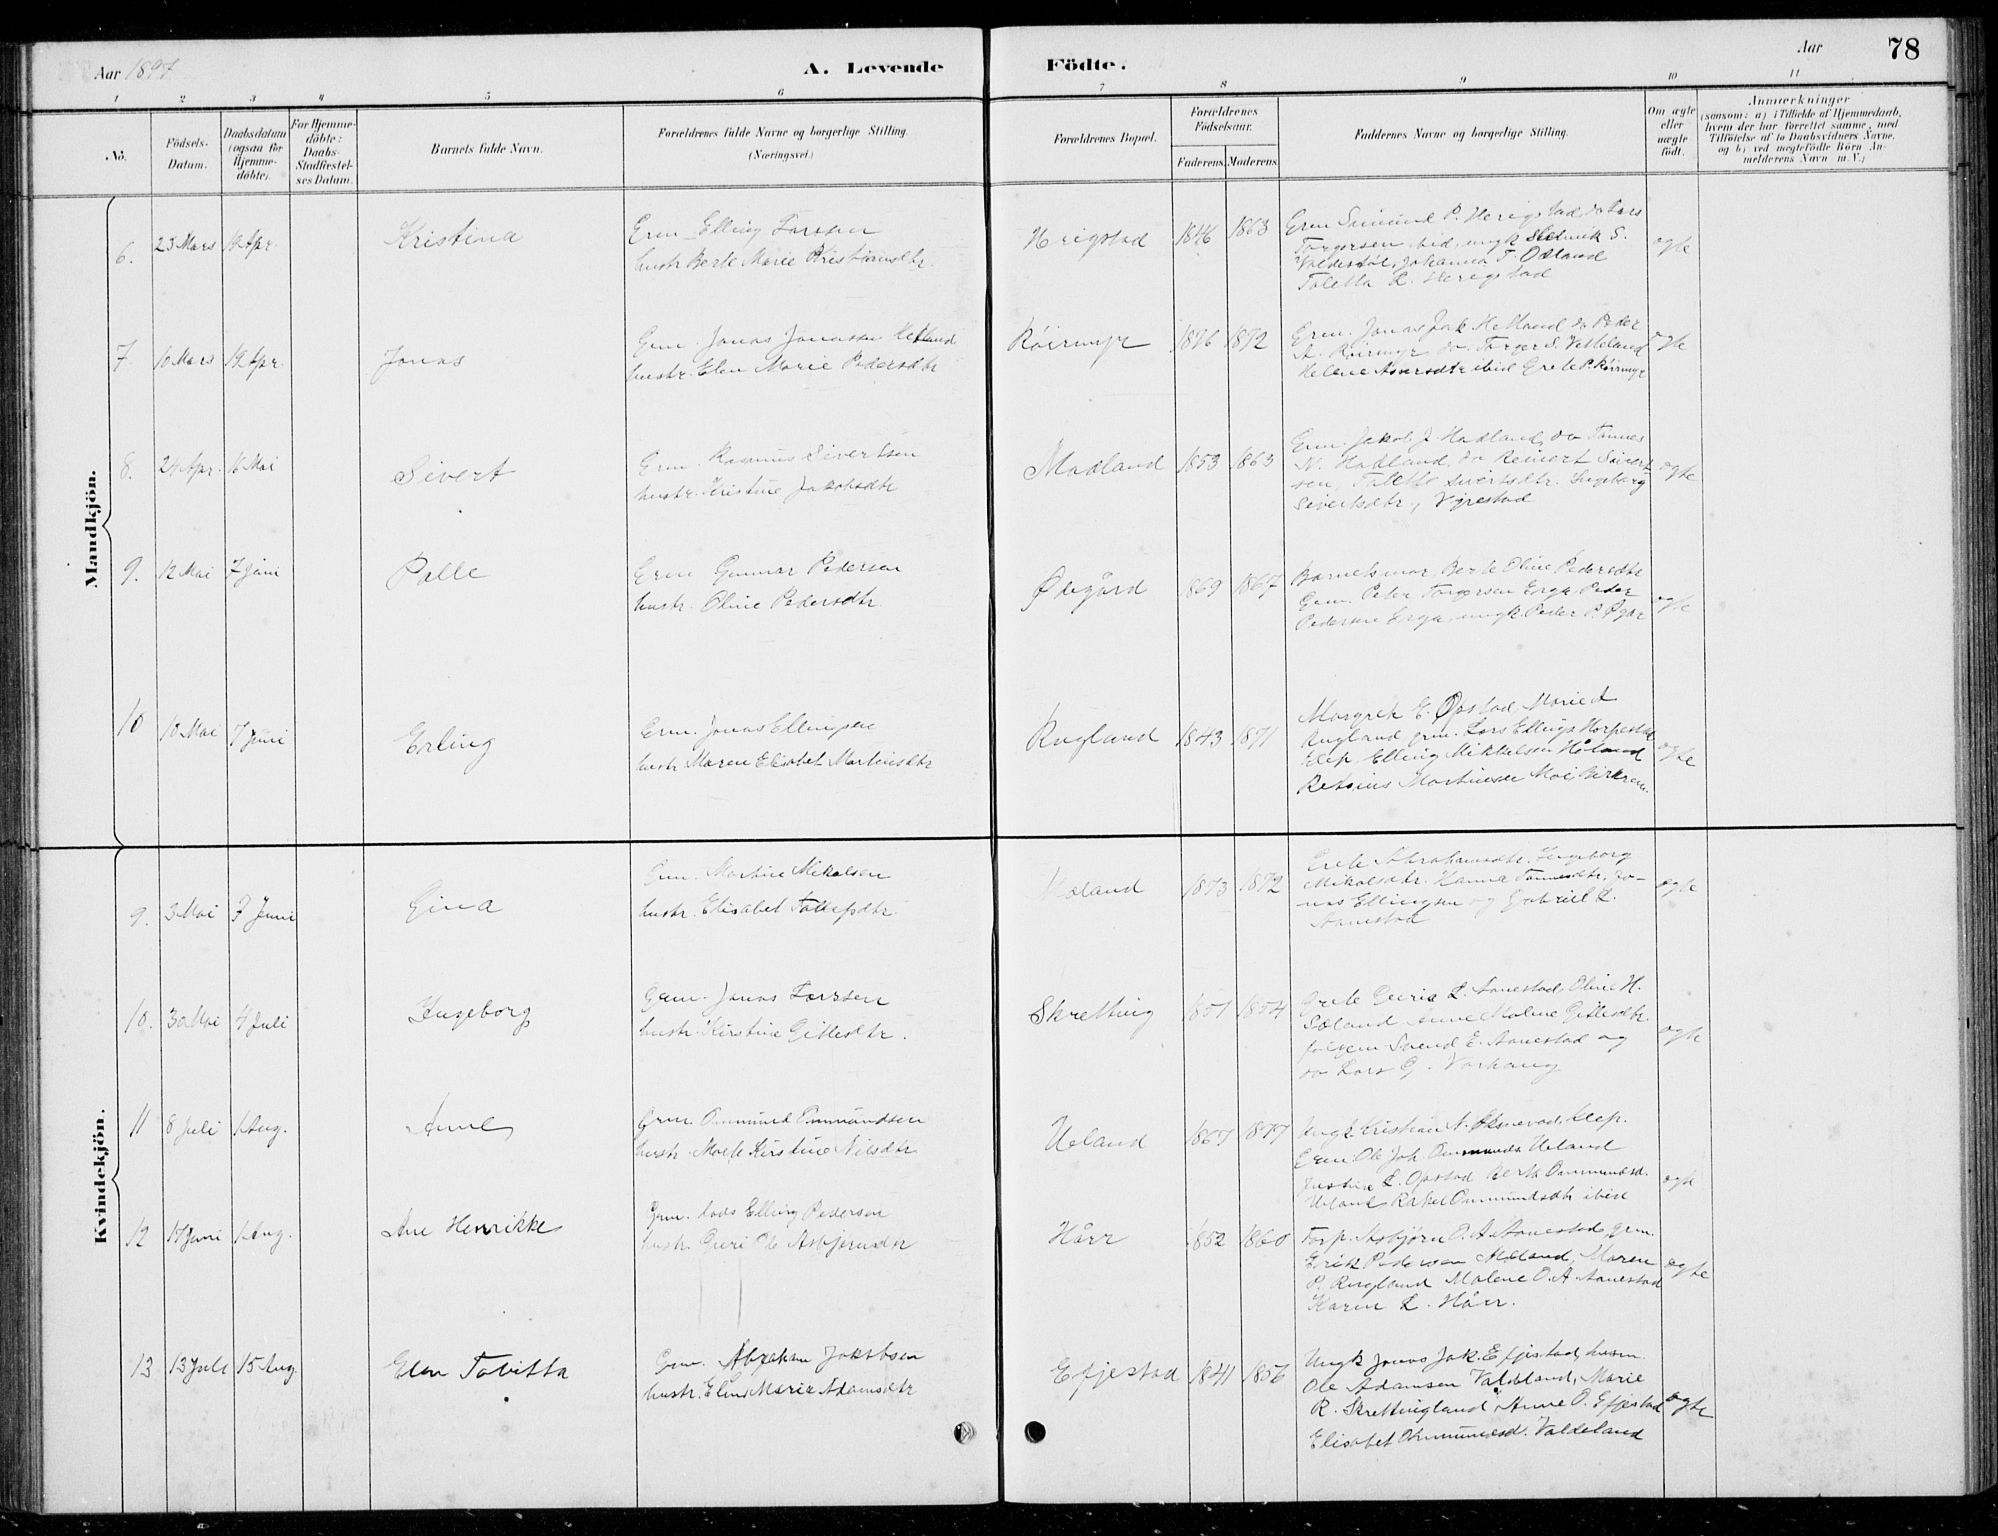 Aar 1897
A. Levende Födte.
Aar 78
1 2 3 4 5 6 7 8 9 10 11
No.
Födsels-Datum.
Daabsdatum (ogsaa för Hjemmedöbte).
For Hjemmedöbte: Daabs-Stadfæstelses Datum.
Barnets fulde Navn.
Forældrenes fulde Navne og borgerlige Stilling. (Næringsvei.)
Forældrenes Bopæl.
Forældrenes Födselsaar.
Faderens. Moderens.
Faddernes Navne og borgerlige Stilling.
Om ægte eller uægte födt.
Anmærkninger
(saasom: a) i Tilfælde af Hjemmedaab, hvem der har forrettet samme, med Tilföielse af to Daabsvidners Navne, og b) ved uægtefödte Börn Anmelderens Navn m. V.)
Mandkjön.
6. 23 Mars 19 Apr. Kristina
Grm Elling Larsen
hustr. Berte Marie Kristiansdtr.
Herigstad 1846 1863
Grm Saimund P. Herigstad, do Lars
Torgersen ibid, ungk S.
Valdestøl, Johanna T. Odland
Taletta L. Herigstad
ægte
7. 10 Mars 19 Apr. Jonas
Grm. Jonas Jonassen Hetland
hustr. Elen Marie Pedersdtr
Røirmyr 1876 1872
Grm. Jonas Jak Hetland do Peder
A. Røirmyr do. Torger S. Vetteland
Helene ibid Grete P. Røirmyr
ægte
8. 24 Apr. 16 Mai Sivert
Grm. Rasmus Sivertsen
hustr. Kristine Jakobsdtr
Madland 1853 1863
Grm. Jakob J. Hadland, do Tønnes
N. Hadland, do Reinert Sivert
sen, Talette Sivertsdtr. Ingeborg
Sivertsdtr, Vigrestad
ægte
9. 12 Mai 7 Juni Palle
Grm Gunnar Pedersen
hustr. Oline Pedersdtr
Ødegård 1869 1867
Barnets mor, Berte Oline Pedersdtr
Grm. Peter Torgersen Erga, Peder
Pedersen Erga, ungk. Peder P.
ægte
10 10 Mai 7 Juni Erling
Grm. Jonas Ellingsen
hustr Maren Elisabet Martinsdtr
Rugland 1843 1871
Margrete E. Opstad, Marie A
Rugland grm. Lars Ellings Horpestad
Klep, Elling Mikkelsen Håland
Martinsen Moi, Birkrem.
ægte
Kvindekjön.
9. 3 Mai 7 Juni Gina
Grm. Martin Mikalsen
hustr. Elisabet Tollefsdtr
Mæland 1873 1872
Grete Abrahamsdtr. Ingeborg
Mikalsdtr. Hanna Tønnesdtr, Jo-
nas Ellingsen og Gabriel L.
Aanestad
ægte
10. 30 Mai 4 Juli Ingeborg
Grm. Jonas Larsen
hustr. Kirstine Gitlesdtr.
Skretting 1851 1854
Grete Guria L. Aanestad, Oline H.
Sæland, Anne Malene Gitlesdtr.
Svend E. Aanestad og
do Lars G. Varhaug
ægte
11 8 Juli 1 Aug. Anne
Grm. Ommund Ommundsen
hustr. Marte Kirstine Nilsdtr
Ueland 1867 1877
Ungk. Kristian N. Øksnevad, Klep.
Grm Ole Joh. Ommunds Ueland
Justine L. Opstad Berte Ommundsd.
Ueland Rakel Ommundsdtr ibid
ægte
12 17 Juni 1 Aug. Ane Henrikke
Grm. Lods Elling Pedersen
hustr. Guri Ol. Asbjørnsdtr
Hårr 1852 1860
Forp. Asbjørn O. A. Aanestad, grm.
Erik Pedersen Mæland, Maren
P. Rugland Malene O. A. Aanestad
Karen L. Hårr.
ægte
13 13 Juli 15 Aug. Elen Tobitta
Grm. Abraham Jakobsen
hustr. Elen Marie Adamsdtr
Efjestad 1841 1856
Ungk Jonas Jak. Efjestad, husm.
Ole Adamsen Valdeland, Marie
R. Skrettingland, Anne O. Efjestad
Elisabet Ommundsd. Valdeland
ægte